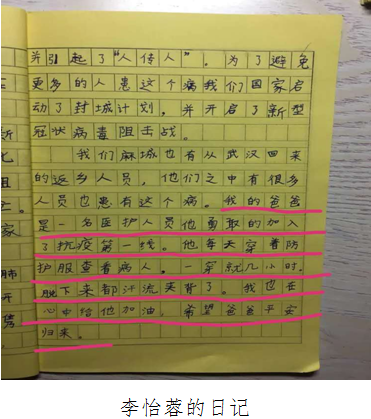 并引起了“人传人”。为了避免
更多的人患这个病我们国家启
动了封城计划，并开启了新型
冠状病毒阻击战。
我们麻城也有从武汉回来
的返乡人员，他们之中有很多
人员也患有这个病。我的爸爸
是一名医护人员他勇敢的加入
了抗疫第一线。他每天穿着防
护服查看病人。一穿就几小时。
脱下来都汗流夹背了。我也在
心中给他加油。希望爸爸平安
归来。
李怡蓉的日记